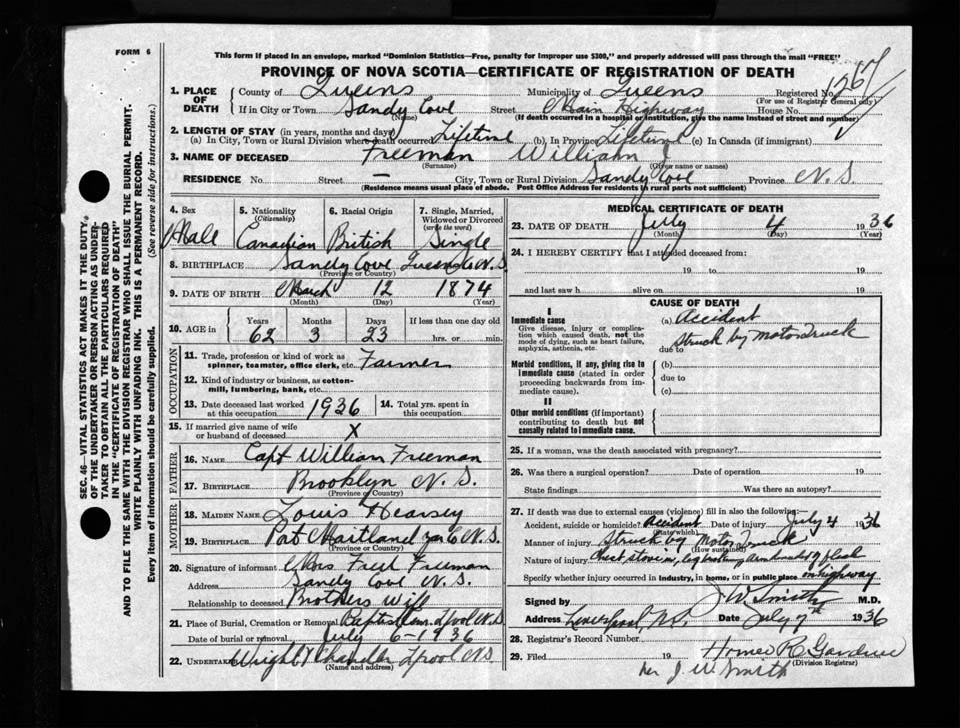 FORM 6
This form if placed in an envelope, marked "Dominion Statistics—Free, penalty for improper use $300," and properly addressed will pass through the mail "FREE"
PROVINCE OF NOVA SCOTIA—CERTIFICATE OF REGISTRATION OF DEATH
1. PLACE OF DEATH
County of Queens Municipality of Queens Registered No. 1267
(For use of Registrar General only)
If in City or Town Sandy Cove Street Main Highway House No.
(Name) (If death occurred in a hospital or institution, give the name instead of street and number)
2. LENGTH OF STAY (in years, months and days)
(a) In City, Town or Rural Division where death occurred Lifetime (b) In Province Lifetime (c) In Canada (if immigrant)
3. NAME OF DECEASED Freeman William
(Surname) (Given name or names)
RESIDENCE No. Street — City, Town or Rural Division Sandy Cove Province N.S.
(Residence means usual place of abode. Post Office Address for residents in rural parts not sufficient)
4. Sex Male
5. Nationality (Citizenship) Canadian
6. Racial Origin British
7. Single, Married, Widowed or Divorced (write the word) Single
8. BIRTHPLACE Sandy Cove Queens Co N.S.
(Province or Country)
9. DATE OF BIRTH March 12 1874
(Month) (Day) (Year)
10. AGE in Years Months Days If less than one day old
62 3 23 hrs. or min.
OCCUPATION
11. Trade, profession or kind of work as spinner, teamster, office clerk, etc. Farmer
12. Kind of industry or business, as cotton-mill, lumbering, bank, etc.
13. Date deceased last worked at this occupation 1936 14. Total yrs. spent in this occupation
15. If married give name of wife or husband of deceased X
FATHER
16. NAME Capt William Freeman
17. BIRTHPLACE Brooklyn N.S.
(Province or Country)
MOTHER
18. MAIDEN NAME Louis Kearsey
19. BIRTHPLACE Pat Maitland N.S.
(Province or Country)
20. Signature of informant Mrs Fred Freeman
Address Sandy Cove N.S.
Relationship to deceased Brothers Wife
21. Place of Burial, Cremation or Removal Baptist Cem. Lpool N.S.
Date of burial or removal July 6-1936
22. Undertaker Wright Chandler Lpool N.S.
(Name and address)
MEDICAL CERTIFICATE OF DEATH
23. DATE OF DEATH July 4 1936
(Month) (Day) (Year)
24. I HEREBY CERTIFY that I attended deceased from:
19 to 19
and last saw h alive on 19
CAUSE OF DEATH
I
Immediate cause (a) Accident
Give disease, injury or complication which caused death, not the mode of dying, such as heart failure, asphyxia, asthenia, etc.
due to Struck by Motor Truck
Morbid conditions, if any, giving rise to immediate cause (stated in order proceeding backwards from immediate cause).
(b)
due to
(c)
II
Other morbid conditions (if important) contributing to death but not causally related to immediate cause.
25. If a woman, was the death associated with pregnancy?
26. Was there a surgical operation? Date of operation 19
State findings Was there an autopsy?
27. If death was due to external causes (violence) fill in also the following:—
Accident, suicide or homicide? Accident Date of injury July 4 1936
(State which)
Manner of injury Struck by Motor Truck
(How sustained)
Nature of injury Chest stove in, leg broken, arm
Specify whether injury occurred in industry, in home, or in public place on highway
Signed by J.W. Smith M.D.
Address Liverpool, N.S. Date July 7th 1936
28. Registrar's Record Number
29. Filed 19 Homer R. Gardner
(Division Registrar)
per J. W. Smith
SEC. 46—VITAL STATISTICS ACT MAKES IT THE DUTY OF THE UNDERTAKER OR PERSON ACTING AS UNDERTAKER TO OBTAIN ALL THE PARTICULARS REQUIRED IN THE "CERTIFICATE OF REGISTRATION OF DEATH"
AND TO FILE THE SAME WITH THE DIVISION REGISTRAR WHO SHALL ISSUE THE BURIAL PERMIT.
WRITE PLAINLY WITH UNFADING INK. THIS IS A PERMANENT RECORD.
Every item of information should be carefully supplied. (See reverse side for instructions.)